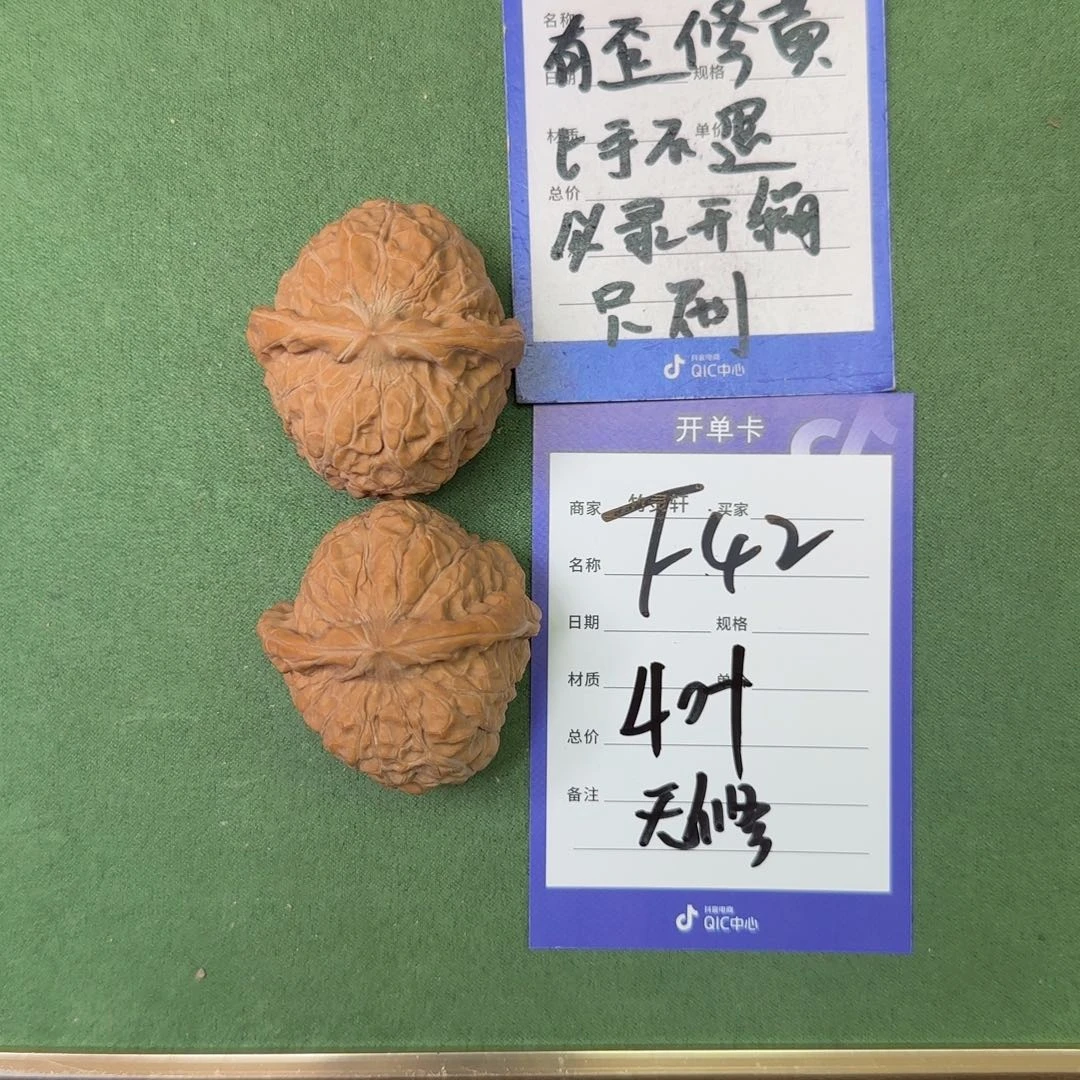 名称
有歪修黄
日期 规格
材质 单价
上手不退
总价
必录开绷
只刷
抖音电商
QIC中心
开单卡
商家 竹灵轩 买家
T42
名称
日期 规格
材质 单
4叶
总价
备注
天修
抖音电商
QIC中心